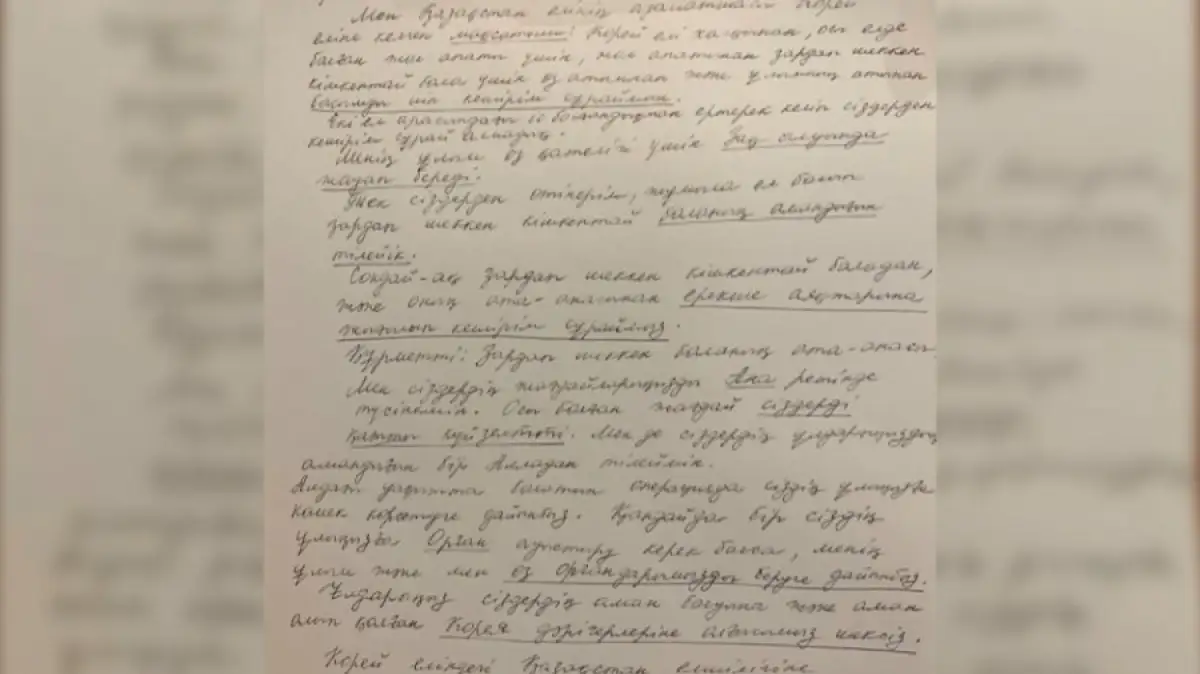 Мен Қазақстан елінің азаматшасы Корей
еліне келген мақсатым: Корей ел халқынан, осы елде
болған жол апаты үшін, жол апатынан зардап шеккен
кішкентай бала үшін өз атымнан және ұлымның атынан
басымды иіп кешірім сұраймын.
Екі ел арасындағы болғандықтан ертерек келіп сіздерден
кешірім сұрай алмадық.
Менің ұлым өз қателігі үшін Заң алдында
жауап береді.
Тек сіздерден өтінерім, жұмыла ел болып
зардап шеккен кішкентай баланың амандығын
тілейік.
Сондай-ақ зардап шеккен кішкентай баладан,
және оның ата-анасынан ерекше аяқтарына
жығылып кешірім сұраймыз.
Құрметті: Зардап шеккен баланың ата-анасы
Мен сіздердің жағдайларыңызды Ана ретінде
түсінемін. Осы болған жағдай сіздерді
қатты күйзелтті. Мен де сіздердің ұлдарыңыздың
амандығын бір Алладан тілеймін.
Алдағы уақытта болатын операцияда сіздің ұлыңызға
көмек көрсетуге дайынбыз. Қандайда бір сіздің
ұлыңызға Орган ауыстыру керек болса, менің
ұлым және мен өз органдарымызды беруге дайынбыз.
Ұлдарыңыз сіздердің аман болуына және аман
алып қалған Корея дәрігерлеріне алғысымыз шексіз.
Корей еліндегі Қазақстан елшілігіне